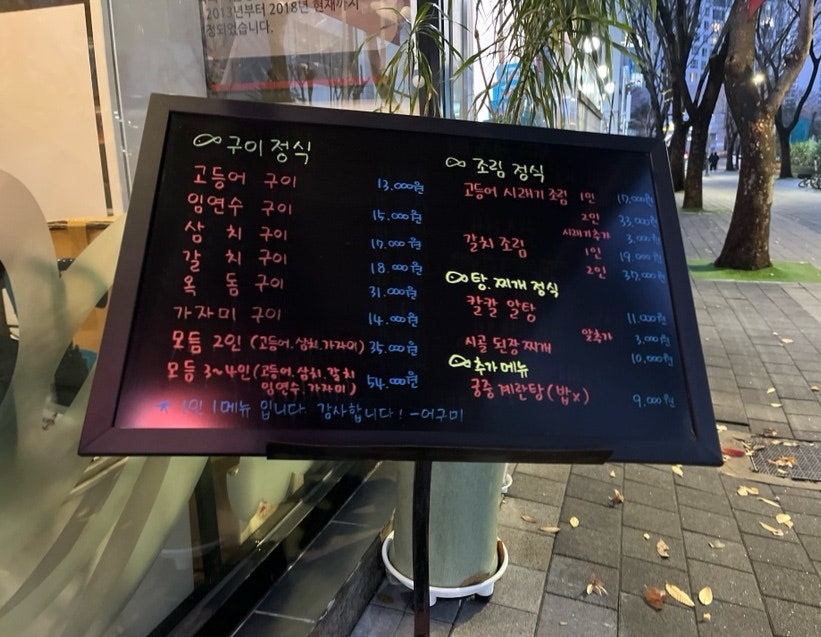 2013년부터 2018년 현재까지
정되었습니다.
구이 정식
고등어 구이 13,000원
임연수 구이 15,000원
삼치 구이 17,000원
갈치 구이 18,000원
옥돔 구이 31,000원
가자미 구이 14,000원
모듬 2인 (고등어.삼치.가자미) 35,000원
모듬 3~4인 (고등어.삼치.갈치
임연수.가자미) 54,000원
★ 1인 1메뉴 입니다. 감사합니다! -어구미
조림 정식
고등어 시래기 조림 1인 17,000원
2인 33,000원
시래기추가 3,000원
갈치 조림 1인 19,000원
2인 37,000원
탕.찌개 정식
칼칼 알탕 11,000원
알추가 3,000원
시골 된장 찌개 10,000원
추가 메뉴
궁중 계란탕 (밥x) 9,000원